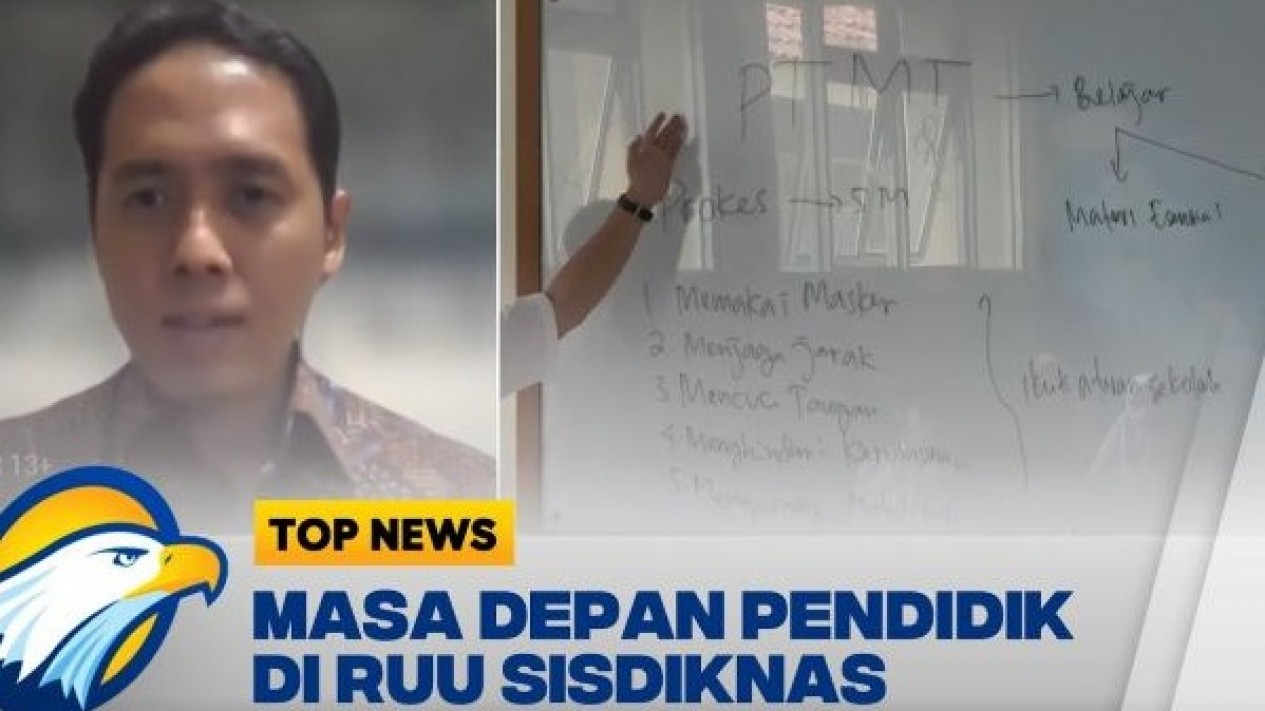 PTMT → Belajar
Prokes → 5M
Materi Esensial
1. Memakai Masker
2. Menjaga jarak
3. Mencuci Tangan
Ikut aturan sekolah
4. Menghindari Kerumunan
5.
13+
TOP NEWS
MASA DEPAN PENDIDIK
DI RUU SISDIKNAS